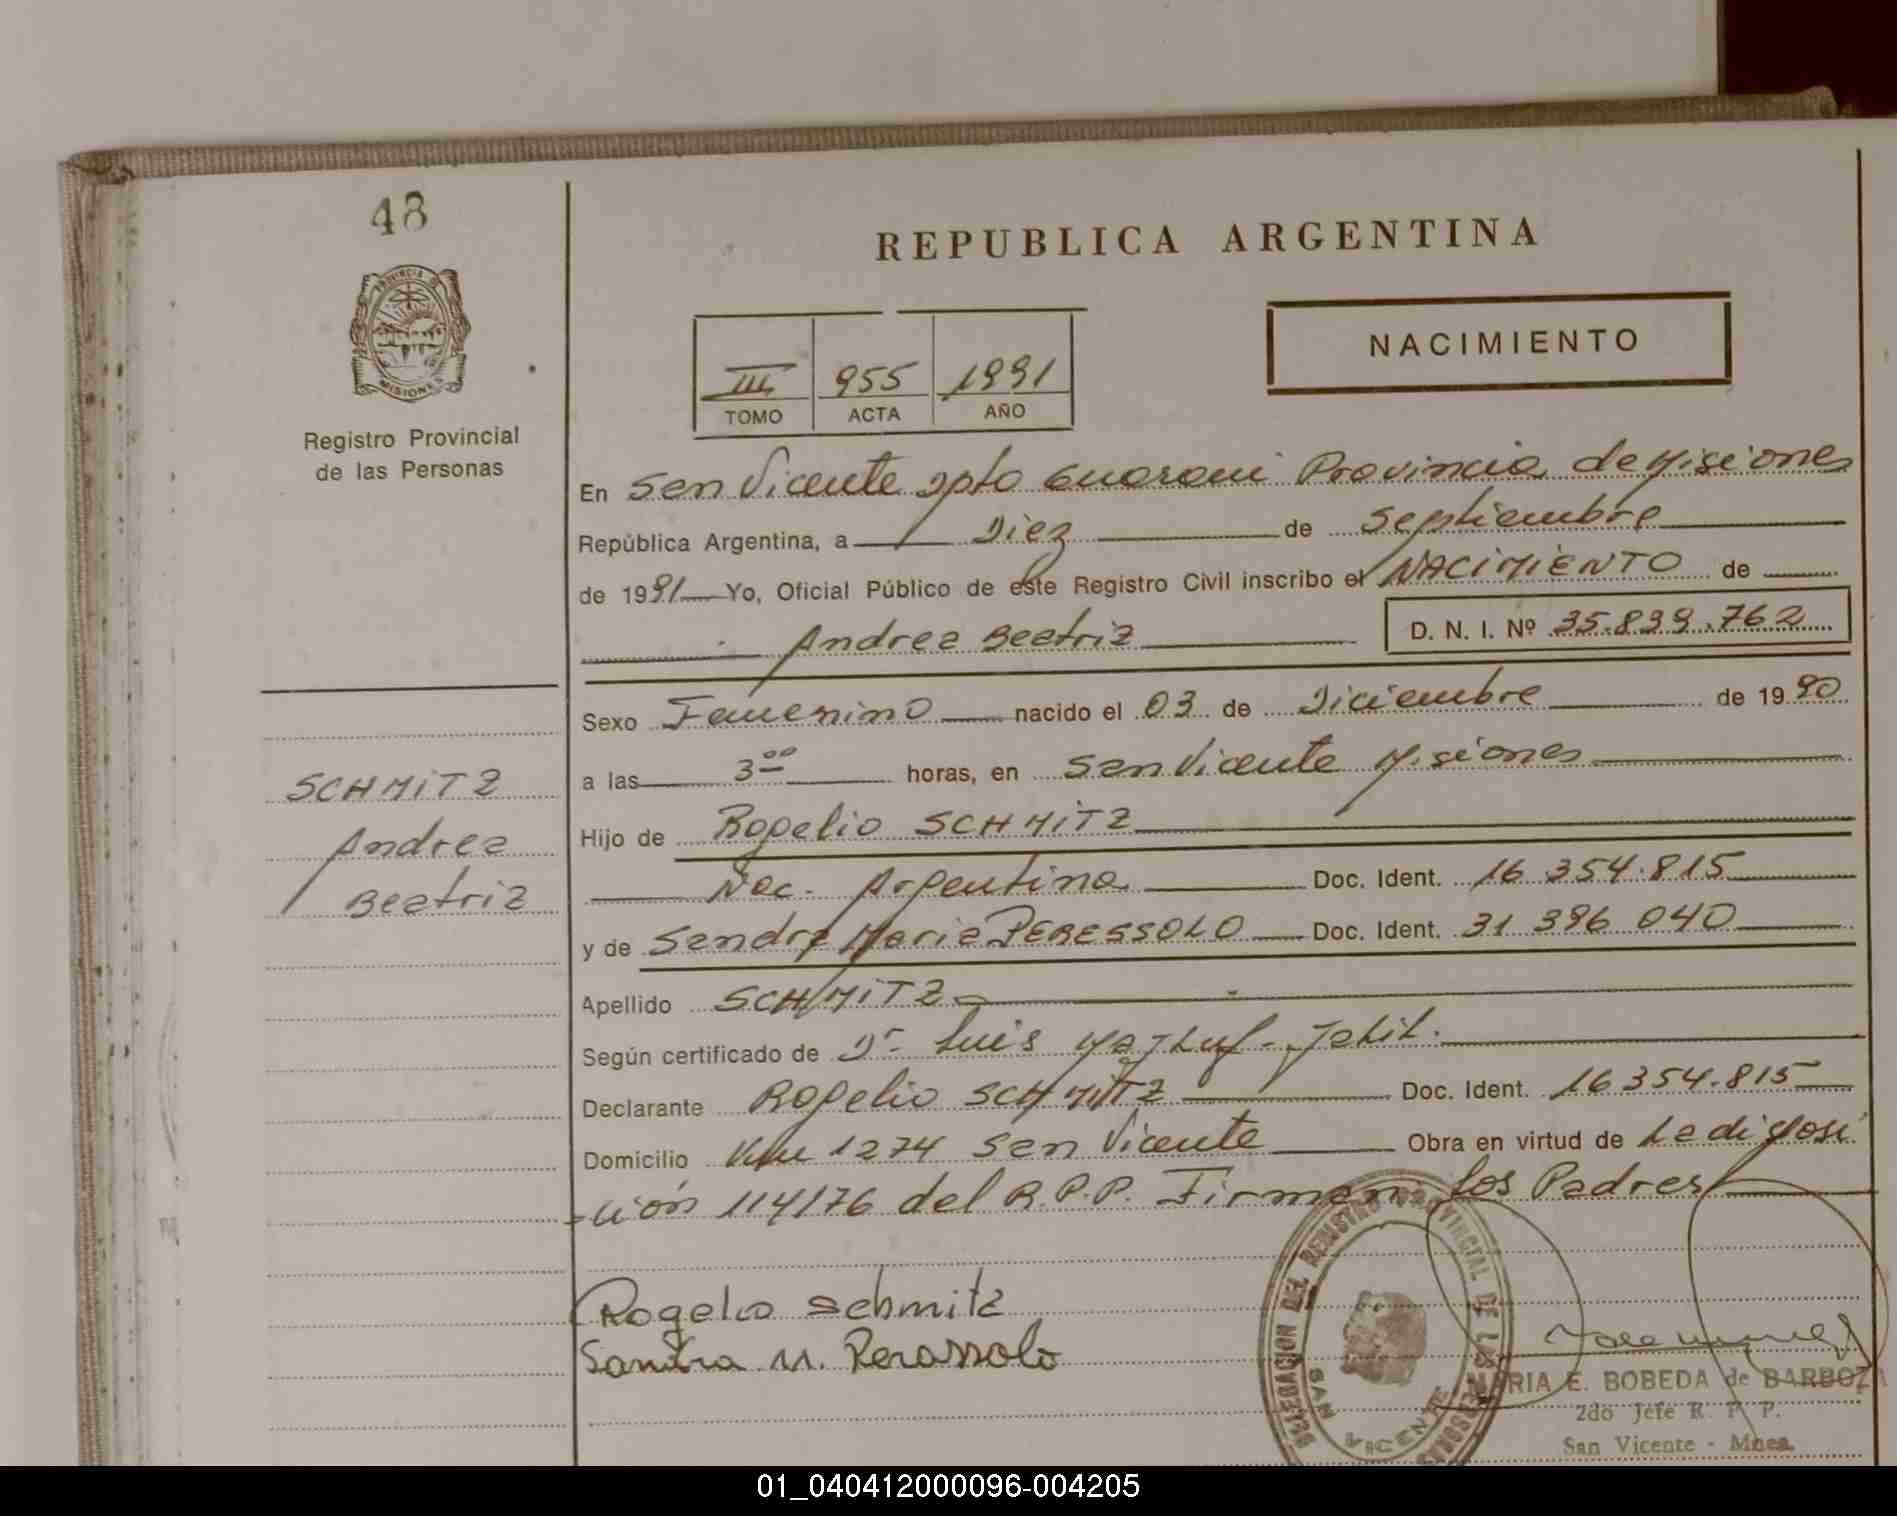 48
REPUBLICA ARGENTINA
NACIMIENTO
III 955 1991
TOMO ACTA AÑO
PROVINCIA DE
MISIONES
Registro Provincial
de las Personas
En San Vicente Dpto Guarani Provincia de Misiones
República Argentina, a Diez de Septiembre
de 1991 Yo, Oficial Público de este Registro Civil inscribo el NACIMIENTO de
Andrea Beatriz D. N. I. Nº 35.839.762
Sexo Femenino nacido el 03 de Diciembre de 1990
a las 3 00 horas, en San Vicente Misiones
SCHMITZ
Andrea
Beatriz
Hijo de Rogelio SCHMITZ
Nac. Argentina Doc. Ident. 16 354.815
y de Sandra Maria PERESSOLO Doc. Ident. 31 396 040
Apellido SCHMITZ
Según certificado de Dr Luis
Declarante Rogelio SCHMITZ Doc. Ident. 16 354.815
Domicilio Km 1274 San Vicente Obra en virtud de La diposi
-ción 114/76 del R.P.P. Firman los Padres
Rogelio Schmitz
Sandra M. Perassolo
DELEGACION DEL REGISTRO PROVINCIAL DE LAS PERSONAS
SAN VICENTE
MARIA E. BOBEDA de BARBOZA
2do Jefe R. P. P.
San Vicente - Mnes.
01_040412000096-004205